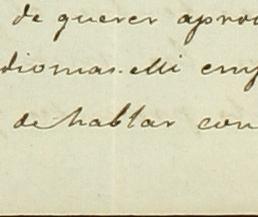 de querer apro
diomas. Mi em
de hablar con